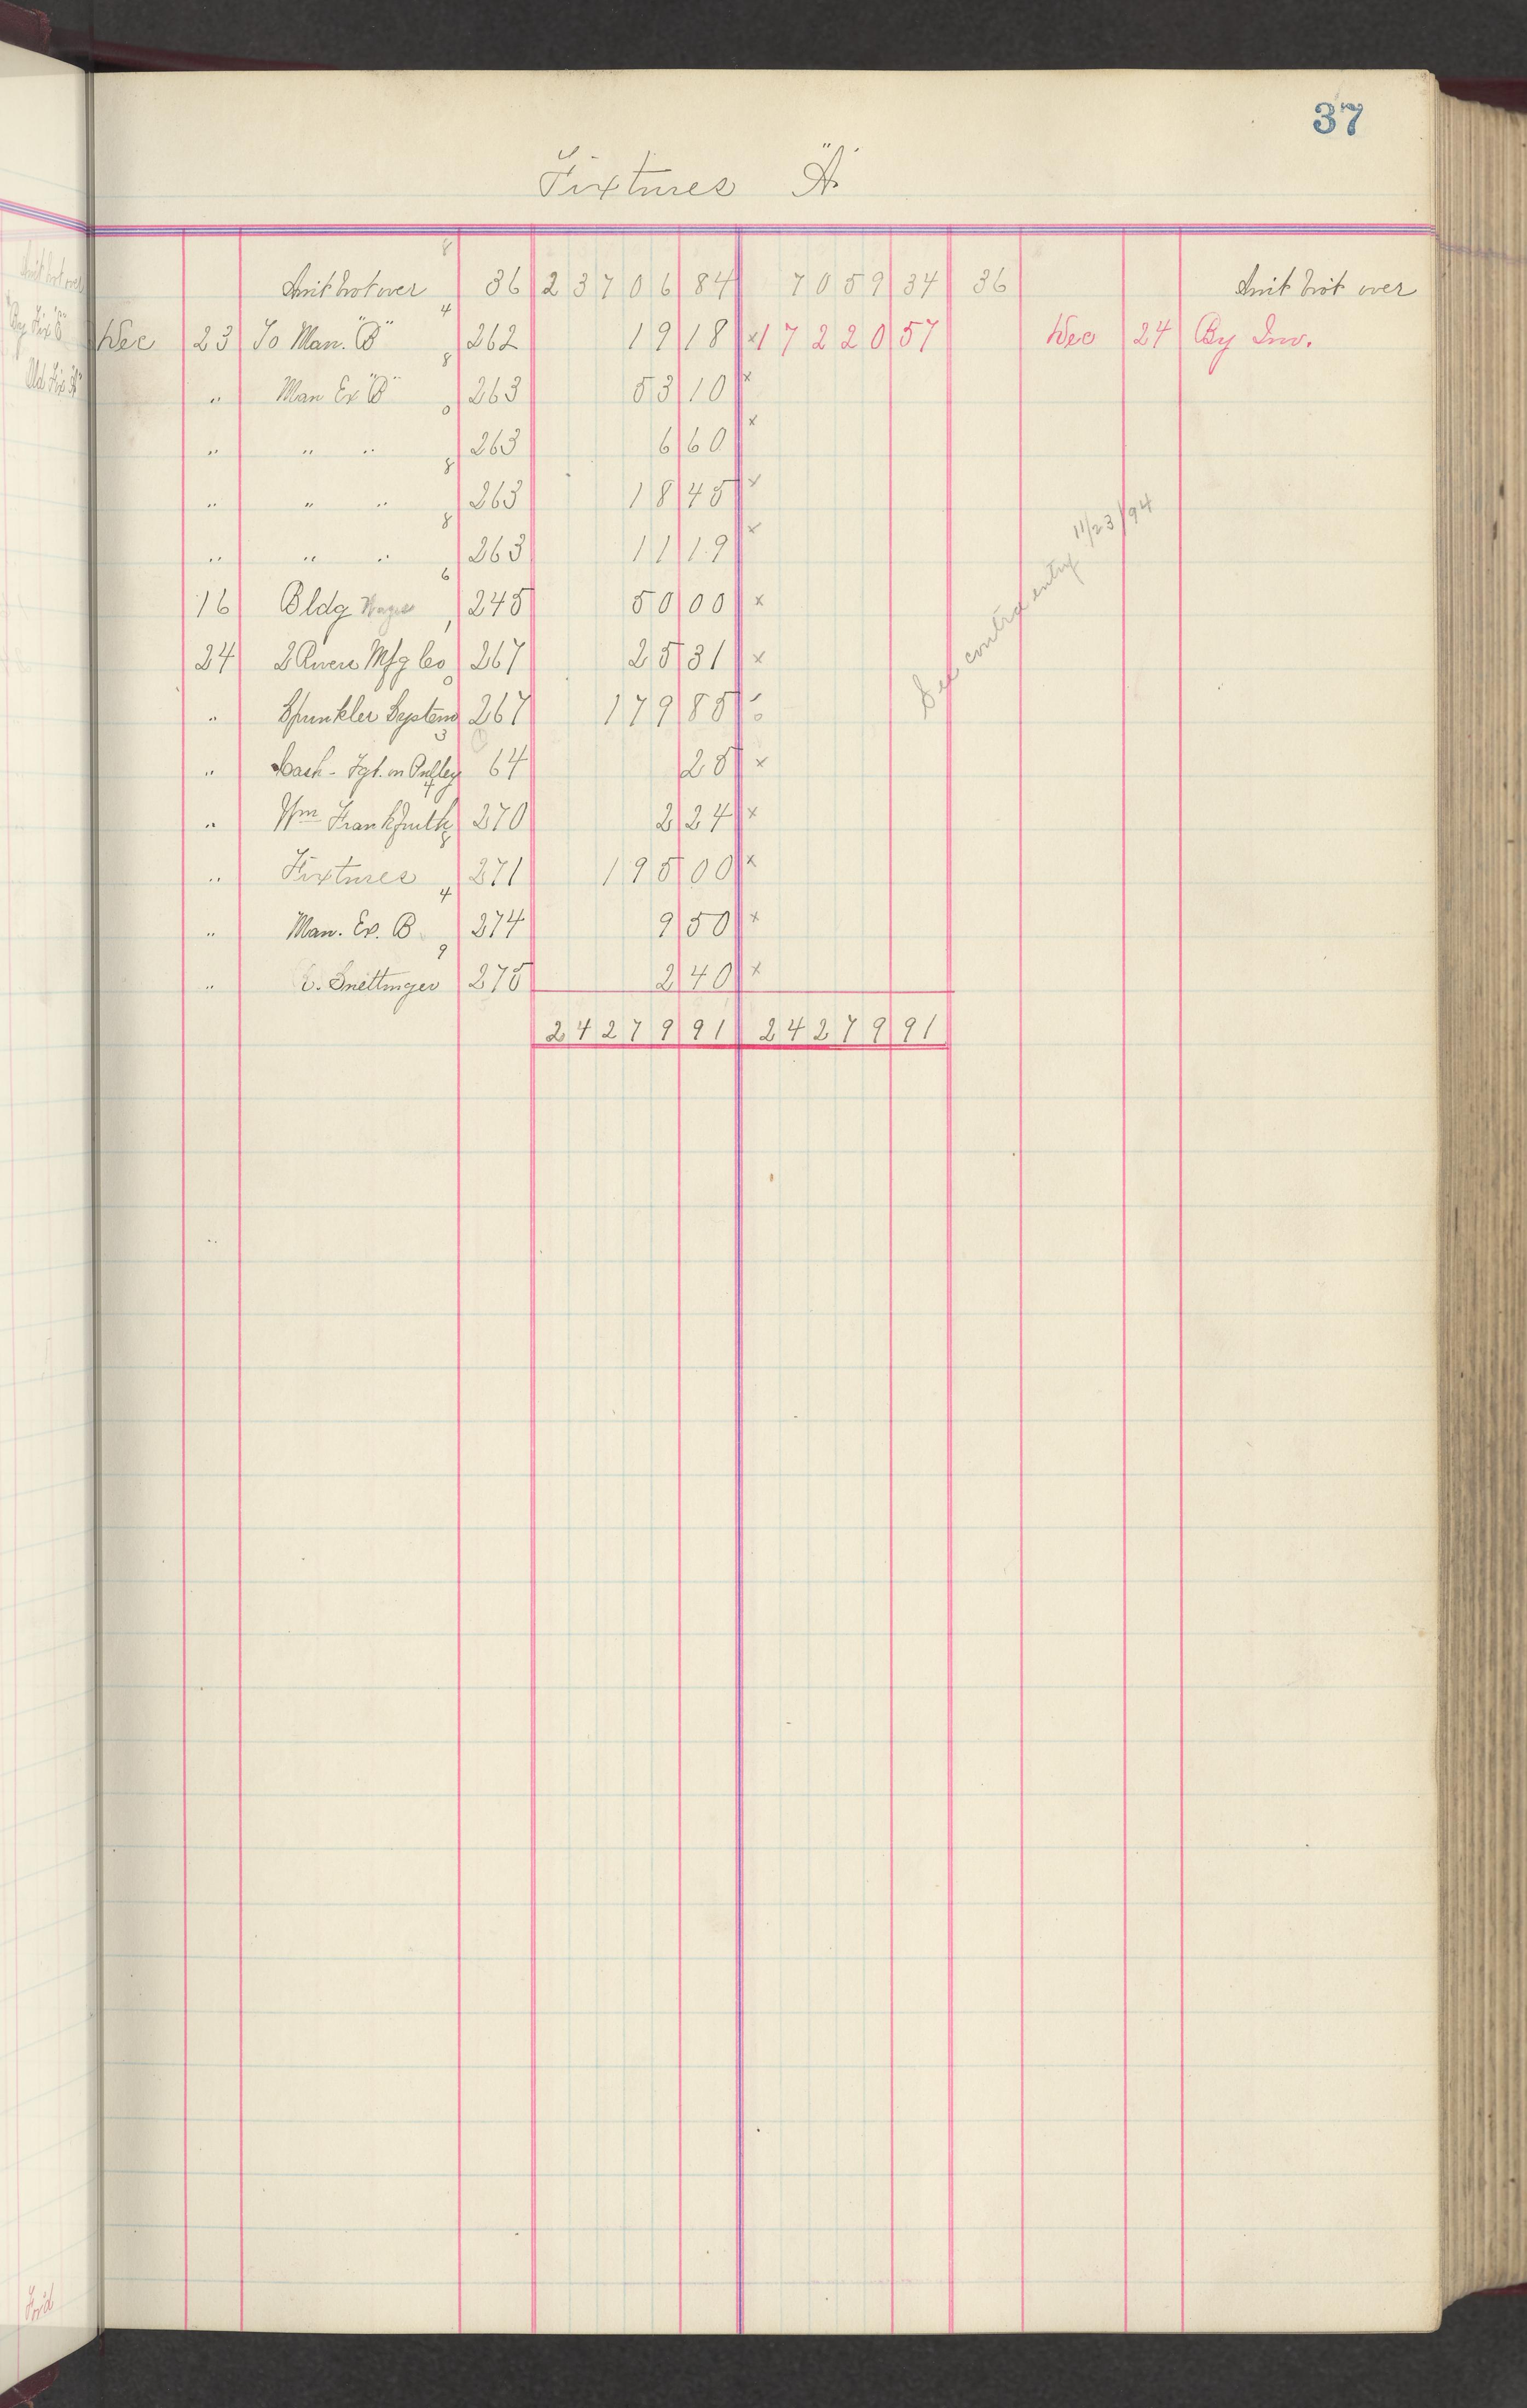 37
Fixtures "A"
Amt brot over 36 23706 84 7059 34 36 Amt brot over
Dec 23 To Man. "B" 262 19 18 x17220 57 Dec 24 By Inv.
" Man Ex "B" 263 53 10 x
" " " 263 6 60 x
" " " 263 18 45 x
" " " 263 11 19 x
16 Bldg Wages 245 50 00 x
24 Mfg Co 267 25 31 x
" Sprinkler System 267 179 85
" Cash - Fgt. on Pulley 64 25 x
" Wm Frankfurth 270 2 24 x
" Fixtures 271 195 00 x
" Man. Ex. B 274 9 50 x
" 275 2 40 x
24279 91 24279 91
See contra entry 11/23/94